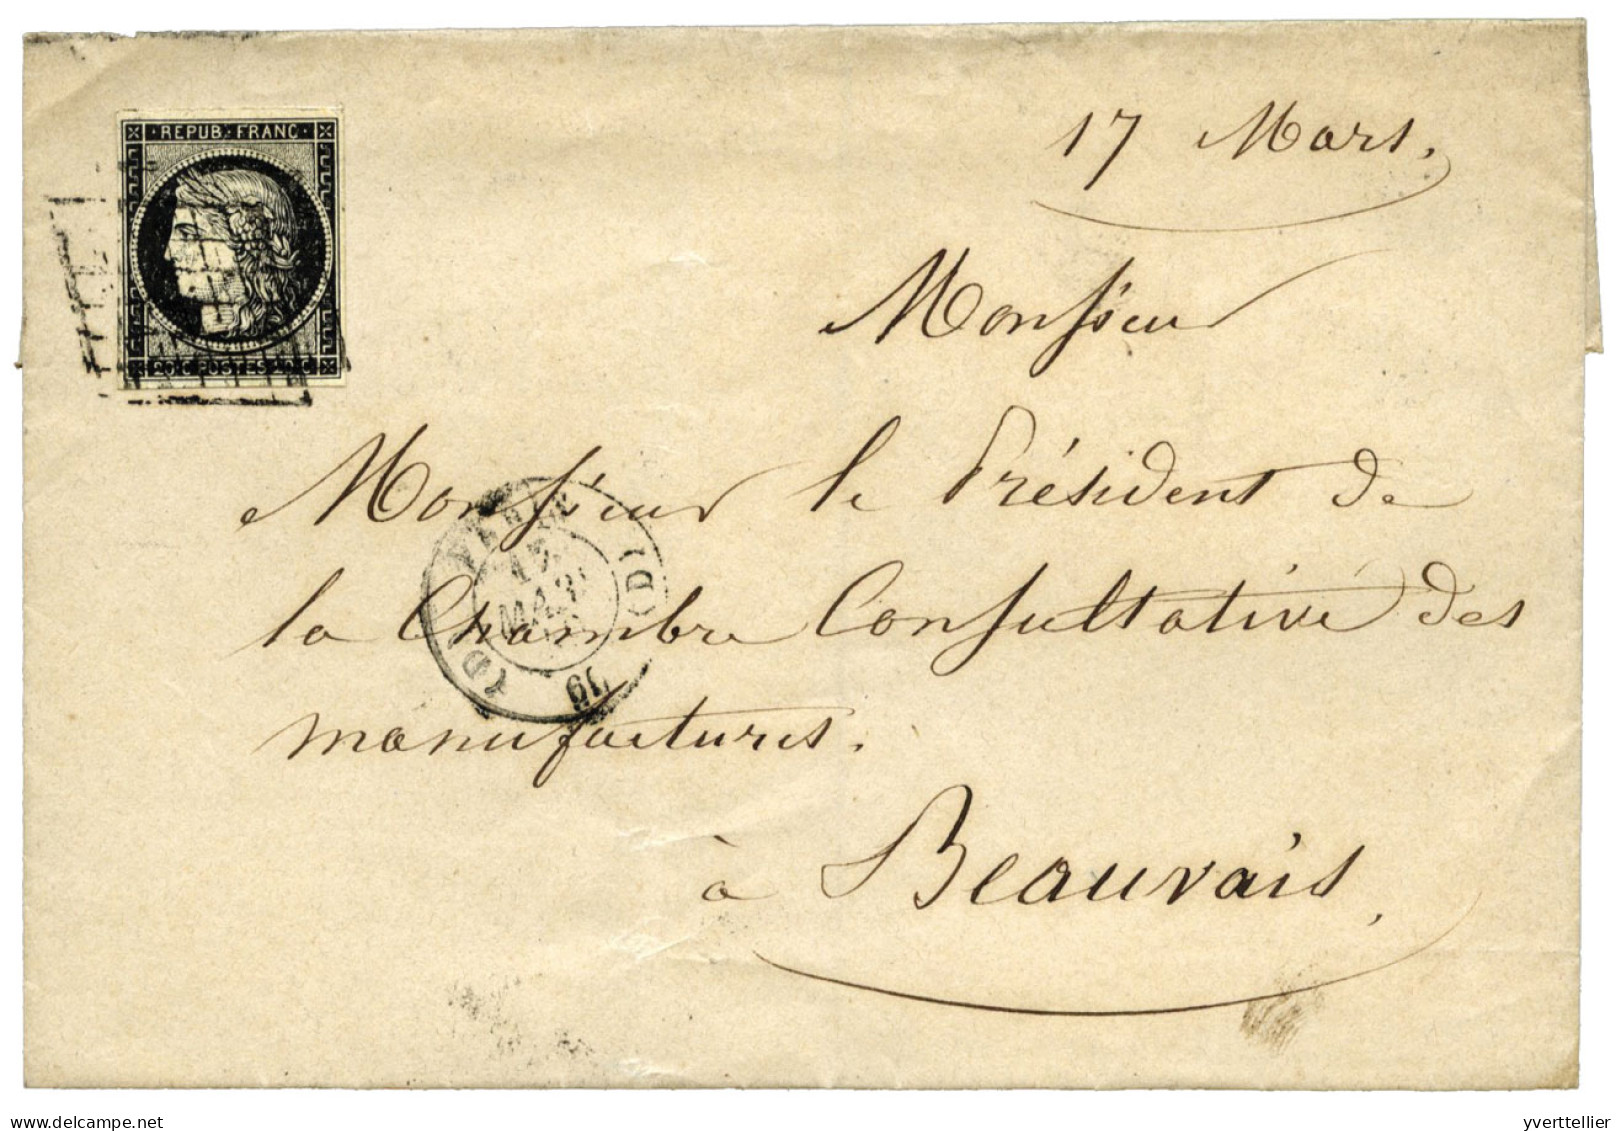 · REPUB. FRANC ·
17 Mars.
20 · C · POSTES 20 · C
Monsieur
Monsieur le Président de
la Chambre Consultative des
manufactures.
à Beauvais,
PARIS
17
MARS
(D)
(D)
delcampe.net
yverttellier